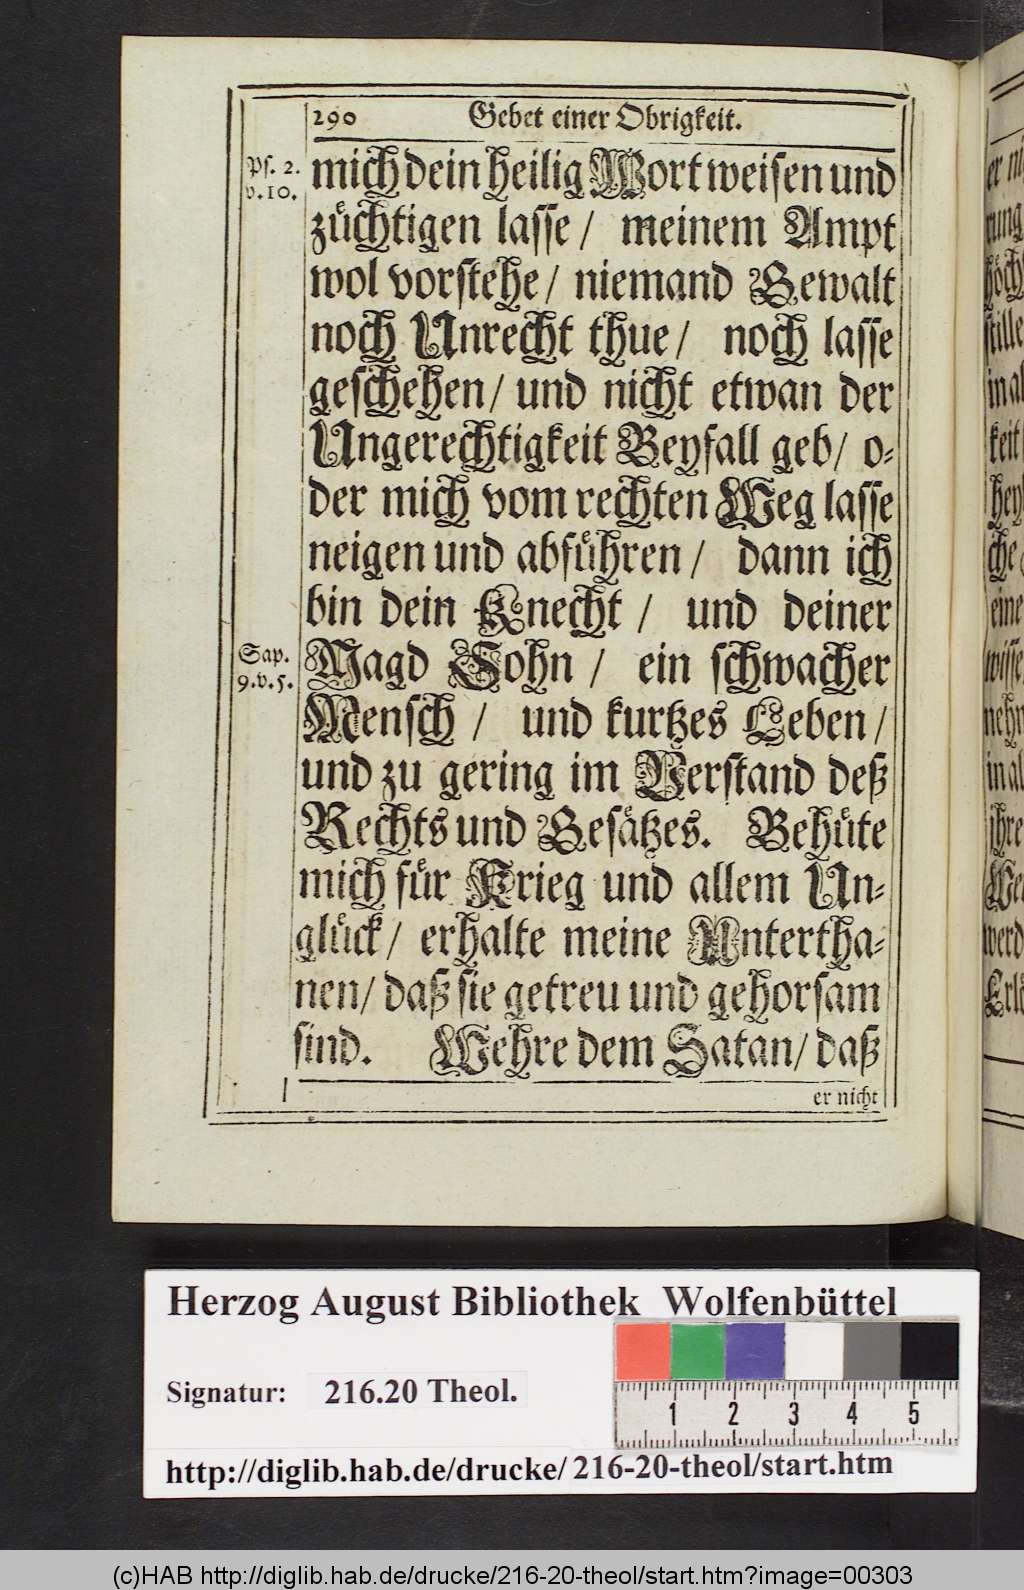 290 Gebet einer Obrigkeit.
Ps. 2.
v.10.
mich dein heilig Wort weisen und
züchtigen lasse / meinem Ampt
wol vorstehe / niemand Gewalt
noch Unrecht thue / noch lasse
geschehen / und nicht etwan der
Ungerechtigkeit Beyfall geb / o-
der mich vom rechten Weg lasse
neigen und abführen / dann ich
bin dein Knecht / und deiner
Sap.
9.v.5.
Magd Sohn / ein schwacher
Mensch / und kurtzes Leben /
und zu gering im Verstand deß
Rechts und Gesätzes. Behüte
mich für Krieg und allem Un-
glück / erhalte meine Untertha-
nen / daß sie getreu und gehorsam
sind. Wehre dem Satan / daß
er nicht
Herzog August Bibliothek Wolfenbüttel
Signatur: 216.20 Theol.
1 2 3 4 5
http://diglib.hab.de/drucke/ 216-20-theol/start.htm
(c)HAB http://diglib.hab.de/drucke/216-20-theol/start.htm?image=00303